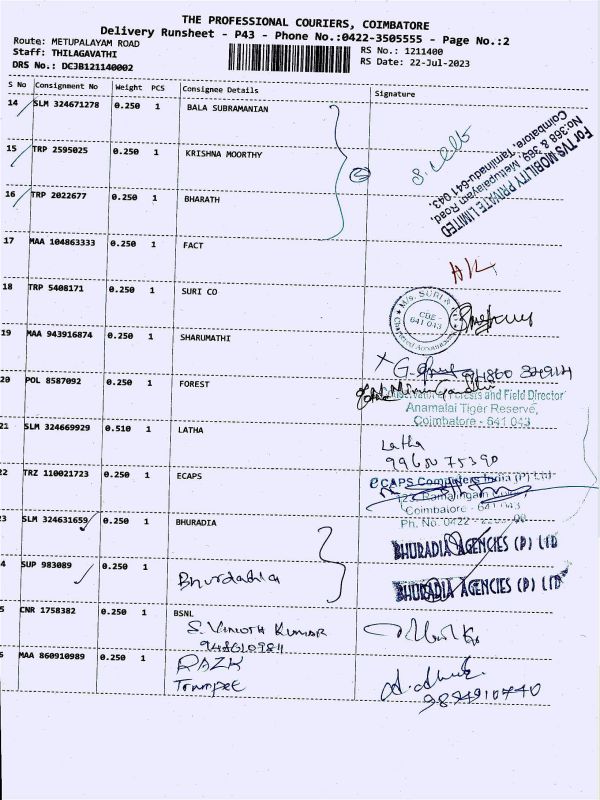 THE PROFESSIONAL COURIERS, COIMBATORE
Delivery Runsheet - P43 - Phone No.:0422-3505555 - Page No.:2
Route: METUPALAYAM ROAD
RS No.: 1211400
Staff: THILAGAVATHI
RS Date: 22-Jul-2023
DRS No.: DC3B121140002
S No Consignment No Weight PCS Consignee Details Signature
14 SLM 324671278 0.250 1 BALA SUBRAMANIAN
For TVS MOBILITY PRIVATE LIMITED
No:368 & 369, Mettupalayam Road,
Coimbatore, Tamilnadu-641 043.
15 TRP 2595025 0.250 1 KRISHNA MOORTHY
16 TRP 2022677 0.250 1 BHARATH
17 MAA 104863333 0.250 1 FACT
18 TRP 5408171 0.250 1 SURI CO
M/s. SURI &
CBE -
641 043
Chartered Accountants
19 MAA 943916874 0.250 1 SHARUMATHI
20 POL 8587092 0.250 1 FOREST
Forests and Field Director
Anamalai Tiger Reserve,
Coimbatore - 641 043
21 SLM 324669929 0.510 1 LATHA
Latha
22 TRZ 110021723 0.250 1 ECAPS
eCAPS Computers India (P) Ltd
Coimbatore - 641 043
Ph. No. 0422
3 SLM 324631659 0.250 1 BHURADIA
BHURADIA AGENCIES (P) LTD
4 SUP 983089 0.250 1
BHURADIA AGENCIES (P) LTD
5 CNR 1758382 0.250 1 BSNL
S. VINOTH KUMAR
6 MAA 860910989 0.250 1 RAZK
Trumpet
9894910740